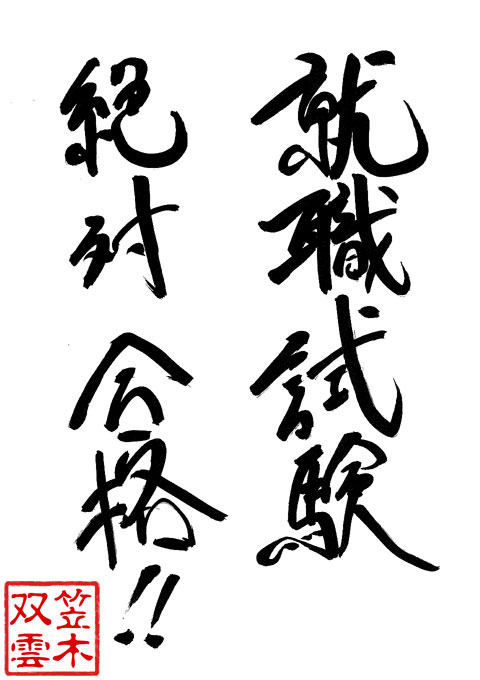 就職試験
絶対合格!!
笠木
双雲